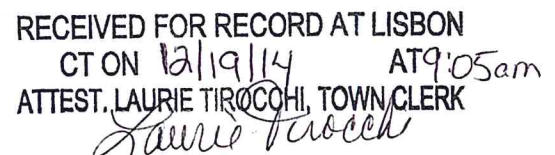 RECEIVED FOR RECORD AT LISBON
CT ON 12/19/14 AT 9:05am
ATTEST. LAURIE TIROCCHI, TOWN CLERK
Laurie Tirocchi